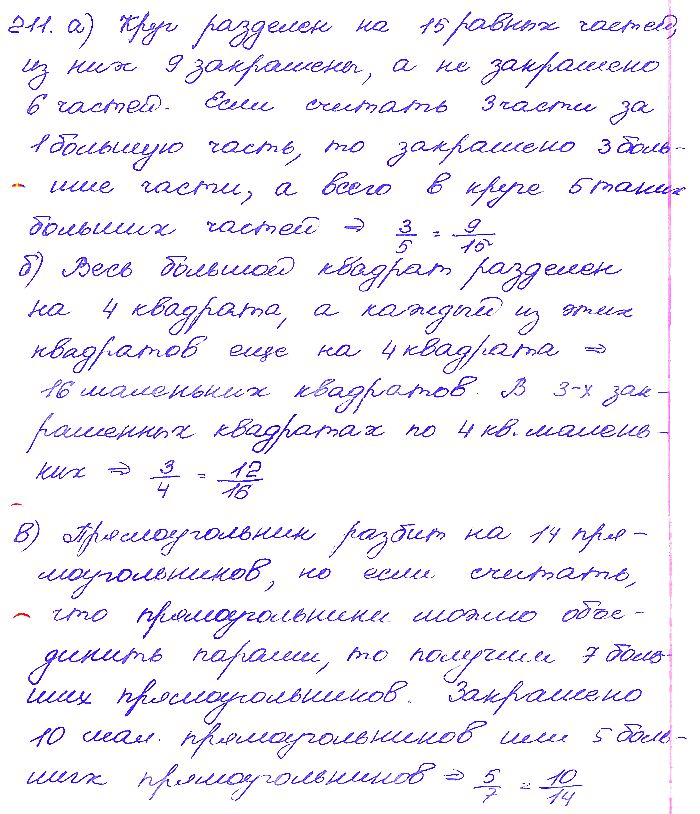 211. а) Круг разделен на 15 равных частей,
из них 9 закрашены, а не закрашено
6 частей. Если считать 3 части за
1 большую часть, то закрашено 3 боль-
шие части, а всего в круге 5 таких
больших частей ⇒ 3/5 = 9/15
б) Весь большой квадрат разделен
на 4 квадрата, а каждый из этих
квадратов еще на 4 квадрата ⇒
16 маленьких квадратов. В 3-х зак-
рашенных квадратах по 4 кв. малень-
ких ⇒ 3/4 = 12/16
в) Прямоугольник разбит на 14 пря-
моугольников, но если считать,
что прямоугольники можно объе-
динить парами, то получим 7 боль-
ших прямоугольников. Закрашено
10 мал. прямоугольников или 5 боль-
ших прямоугольников ⇒ 5/7 = 10/14